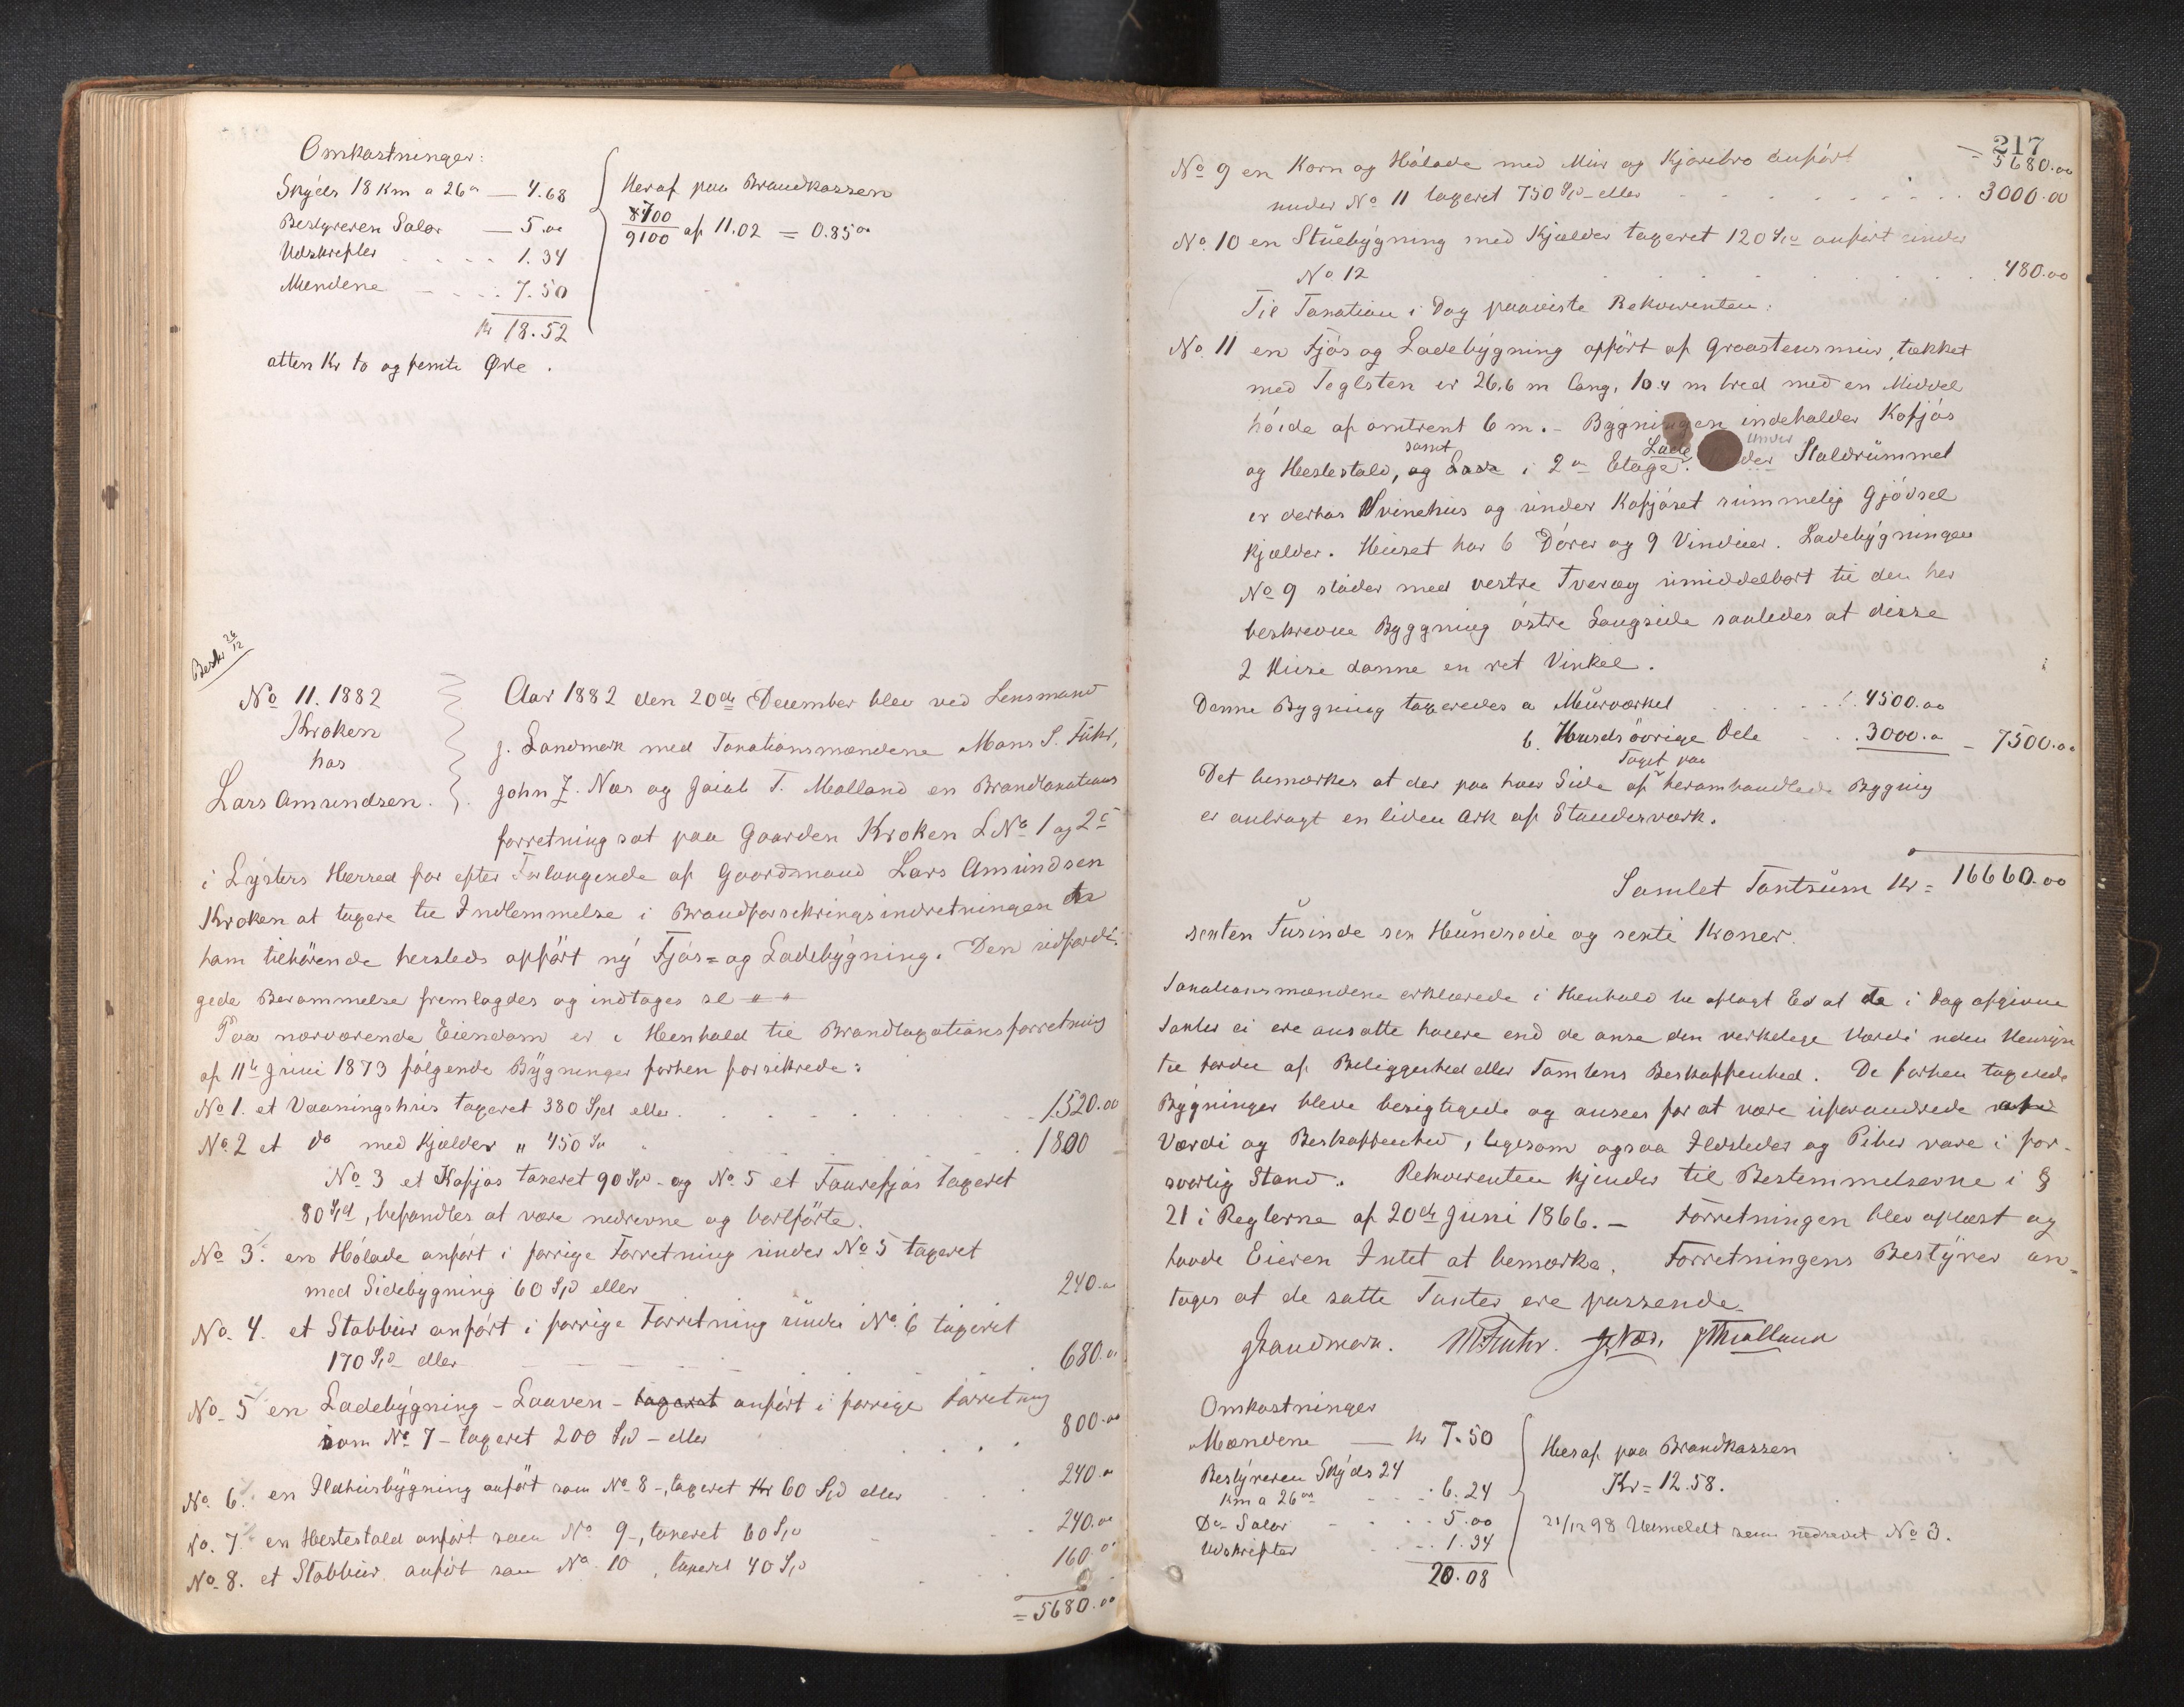 Omkostninger:
Skyds 18 Km a 26 ø — 4.68
Bestyreren Salær — 5.00
Udskrifter . . . . 1.34
Mændene — . . . 7.50
Kr 18.52
atten Kr to og femti Øre .
Heraf paa Brandkassen
8700/9100 af 11.02 = 0.85 øre
Beskr 26/12
No 11. 1882
Kroken
hos
Lars Amundsen.
Aar 1882 den 20de December blev ved Lensmand
J. Landmark med Taxationsmændene Mons S. Fuhr,
John J. Næs og Jacob T. Molland en Brandtaxations
forretning sat paa Gaarden Kroken L No 1 og 2 c
i Lysters Herred for efter Forlangende af Gaardmand Lars Amundsen
Kroken at taxere til Indlemmelse i Brandforsikringsindretningen de
ham tilhörende herseteds opfört ny Fjös= og Ladebygning. Den udfærdi-
gede Berammelse fremlagdes og indtages sl " "
Paa nærværende Eiendom er i Henhold til Brandtaxationsforretning
af 11te Juni 1873 fölgende Bygninger forhen forsikrede:
No 1. et Vaaningshus taxeret 380 Spd eller . . . . . . 1520.00
No 2 et do med Kjælder " 450 Spd " . . . . . 1800
No 3 et Kofjös taxeret 90 Spd - og No 5 et Faurefjös taxeret
80 Spd, befandtes at være nedrevne og bortförte.
No 3. en Hölade anfört i forrige Forretning under No 5 taxeret
med Sidebygning 60 Spd eller 240.00
No. 4. et Stabbur anfört i forrige Forretning under No 6 taxeret
170 Spd eller 680.00
No. 5 en Ladebygning - Laaven - taxeret anfört i forrige Forretning
som No 7 - taxeret 200 Spd - eller . . . 800.00
No. 6. en Ildhusbygning anfört som No 8 -, taxeret Kr 60 Spd eller . . 240.00
No. 7. en Hestestald anfört som No 9 -, taxeret 60 Spd . . 240.00
No. 8. et Stabbur anfört som No 10 , taxeret 40 Spd . . 160.00
= 5680.00
217
= 5680.00
No 9 en Korn og Hölade med Mur og Kjörebro anfört
under No 11 taxeret 750 Spd - eller . . . . . . 3000.00
No. 10 en Stuebygning med Kjælder taxeret 120 Spd anfört under
No 12 . . . . . . . . 480.00
Til Taxation i Dag paaviste Rekvirenten:
No. 11 en Fjös og Ladebygning opfört af Graastensmur, tækket
med Teglsten er 26,6 m lang, 10.4 m bred med en Middel
höide af omtrent 6 m. - Bygningen indeholder Kofjös
samt Lade under
og Hestestald, og Lade i 2en Etage. der Staldrummet
er derhos Svinehus og under Kofjöset rummelig Gjödsel
kjælder. Huset har 6 Dörer og 9 Vinduer. Ladebygningen
No 9 stöder med vestre Tværvæg umiddelbart til den her
beskrevne Byggning östre Langside saaledes at disse
2 Huse danne en ret Vinkel.
Denne Bygning taxeredes a Murværket . . . . . 4500.00
b. Husets övrige Dele . . 3000.00 - 7500.00
Taget paa
Det bemærkes at der paa hver Side af heromhandlede Bygnig
er anbragt en liden Ark af Stænderværk.
Samlet Taxtsum Kr = 16660.00
sexten Tusinde sex Hundrede og sexti Kroner.
Taxationsmændene erklærede i Henhold til aflagt Ed at de i Dag afgivne
Taxter ei ere ansatte höiere end de anse den verkelige Værdi uden Hensyn
til Fordele af Beliggenhed eller Tomtens Beskaffenhed. De forhen taxerede
Bygninger bleve besigtigede og ansees for at være uforandrede
Værdi og Beskaffenhed, ligesom ogsaa Ildsteder og Piber vare i for-
svarlig Stand. Rekvirenten kjender til Bestemmelserne i §
21 i Reglerne af 20de Juni 1866. - Forretningen blev oplæst og
havde Eieren Intet at bemærke. Forretningens Bestyrer an-
tager at de satte Taxter ere passende.
JLandmark. MFuhr. JJNæs. JTMolland
Omkostninger
Mændene — Kr 7.50
Bestyreren Skyds 24
Km a 26 øre . . . 6.24
Do Salær . . . . 5.00
Udskrifter . . . 1.34
20.08
Heraf paa Brandkassen
Kr = 12.58.
21/12 98 Udmeldt som nedrevet No 3.